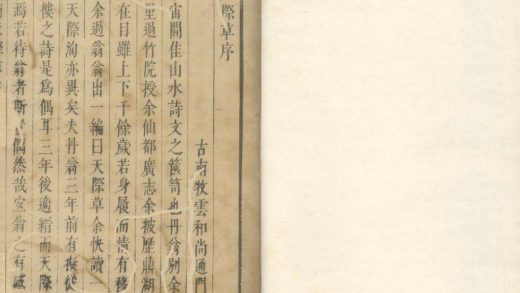 際草序
古南牧雲和尚通門
宙間佳山水詩文之篋笥也丹翁別余
里過竹院授余仙都廣志余披歷鼎湖
在目雖上下千餘歲若身履而情有移
余過翁翁出一編曰天際草余快讀一
天際洵亦異矣夫丹翁三年前有擬從
樓之詩是為偶耳三年後適緝而天際
焉若待翁者斯偶然哉宜翁之有感